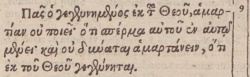 Πᾶς ὁ γεγεννημένος ἐκ τοῦ Θεοῦ, ἁμαρ- 9
τίαν οὐ ποιεῖ· ὅτι σπέρμα αὐτοῦ ἐν αὐτῷ
μένει· καὶ οὐ δύναται ἁμαρτάνειν, ὅτι
ἐκ τοῦ Θεοῦ γεγέννηται.